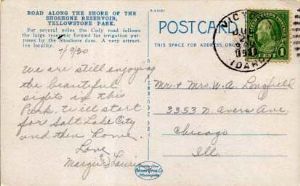 ROAD ALONG THE SHORE OF THE
SHOSHONE RESERVOIR,
YELLOWSTONE PARK.
For several miles the Cody road follows
the large reservoir formed for irrigation pur-
poses by the Shoshone dam. A very attrac-
tive locality.
POST CARD
IDAHO
1
7/9/30
We are still enjoying
the beautiful
sights in this
Park. Will start
for Salt Lake City
and then home.
Love
Mr + Mrs W. A.
2353 N. Avers Ave
Chicago
Ill